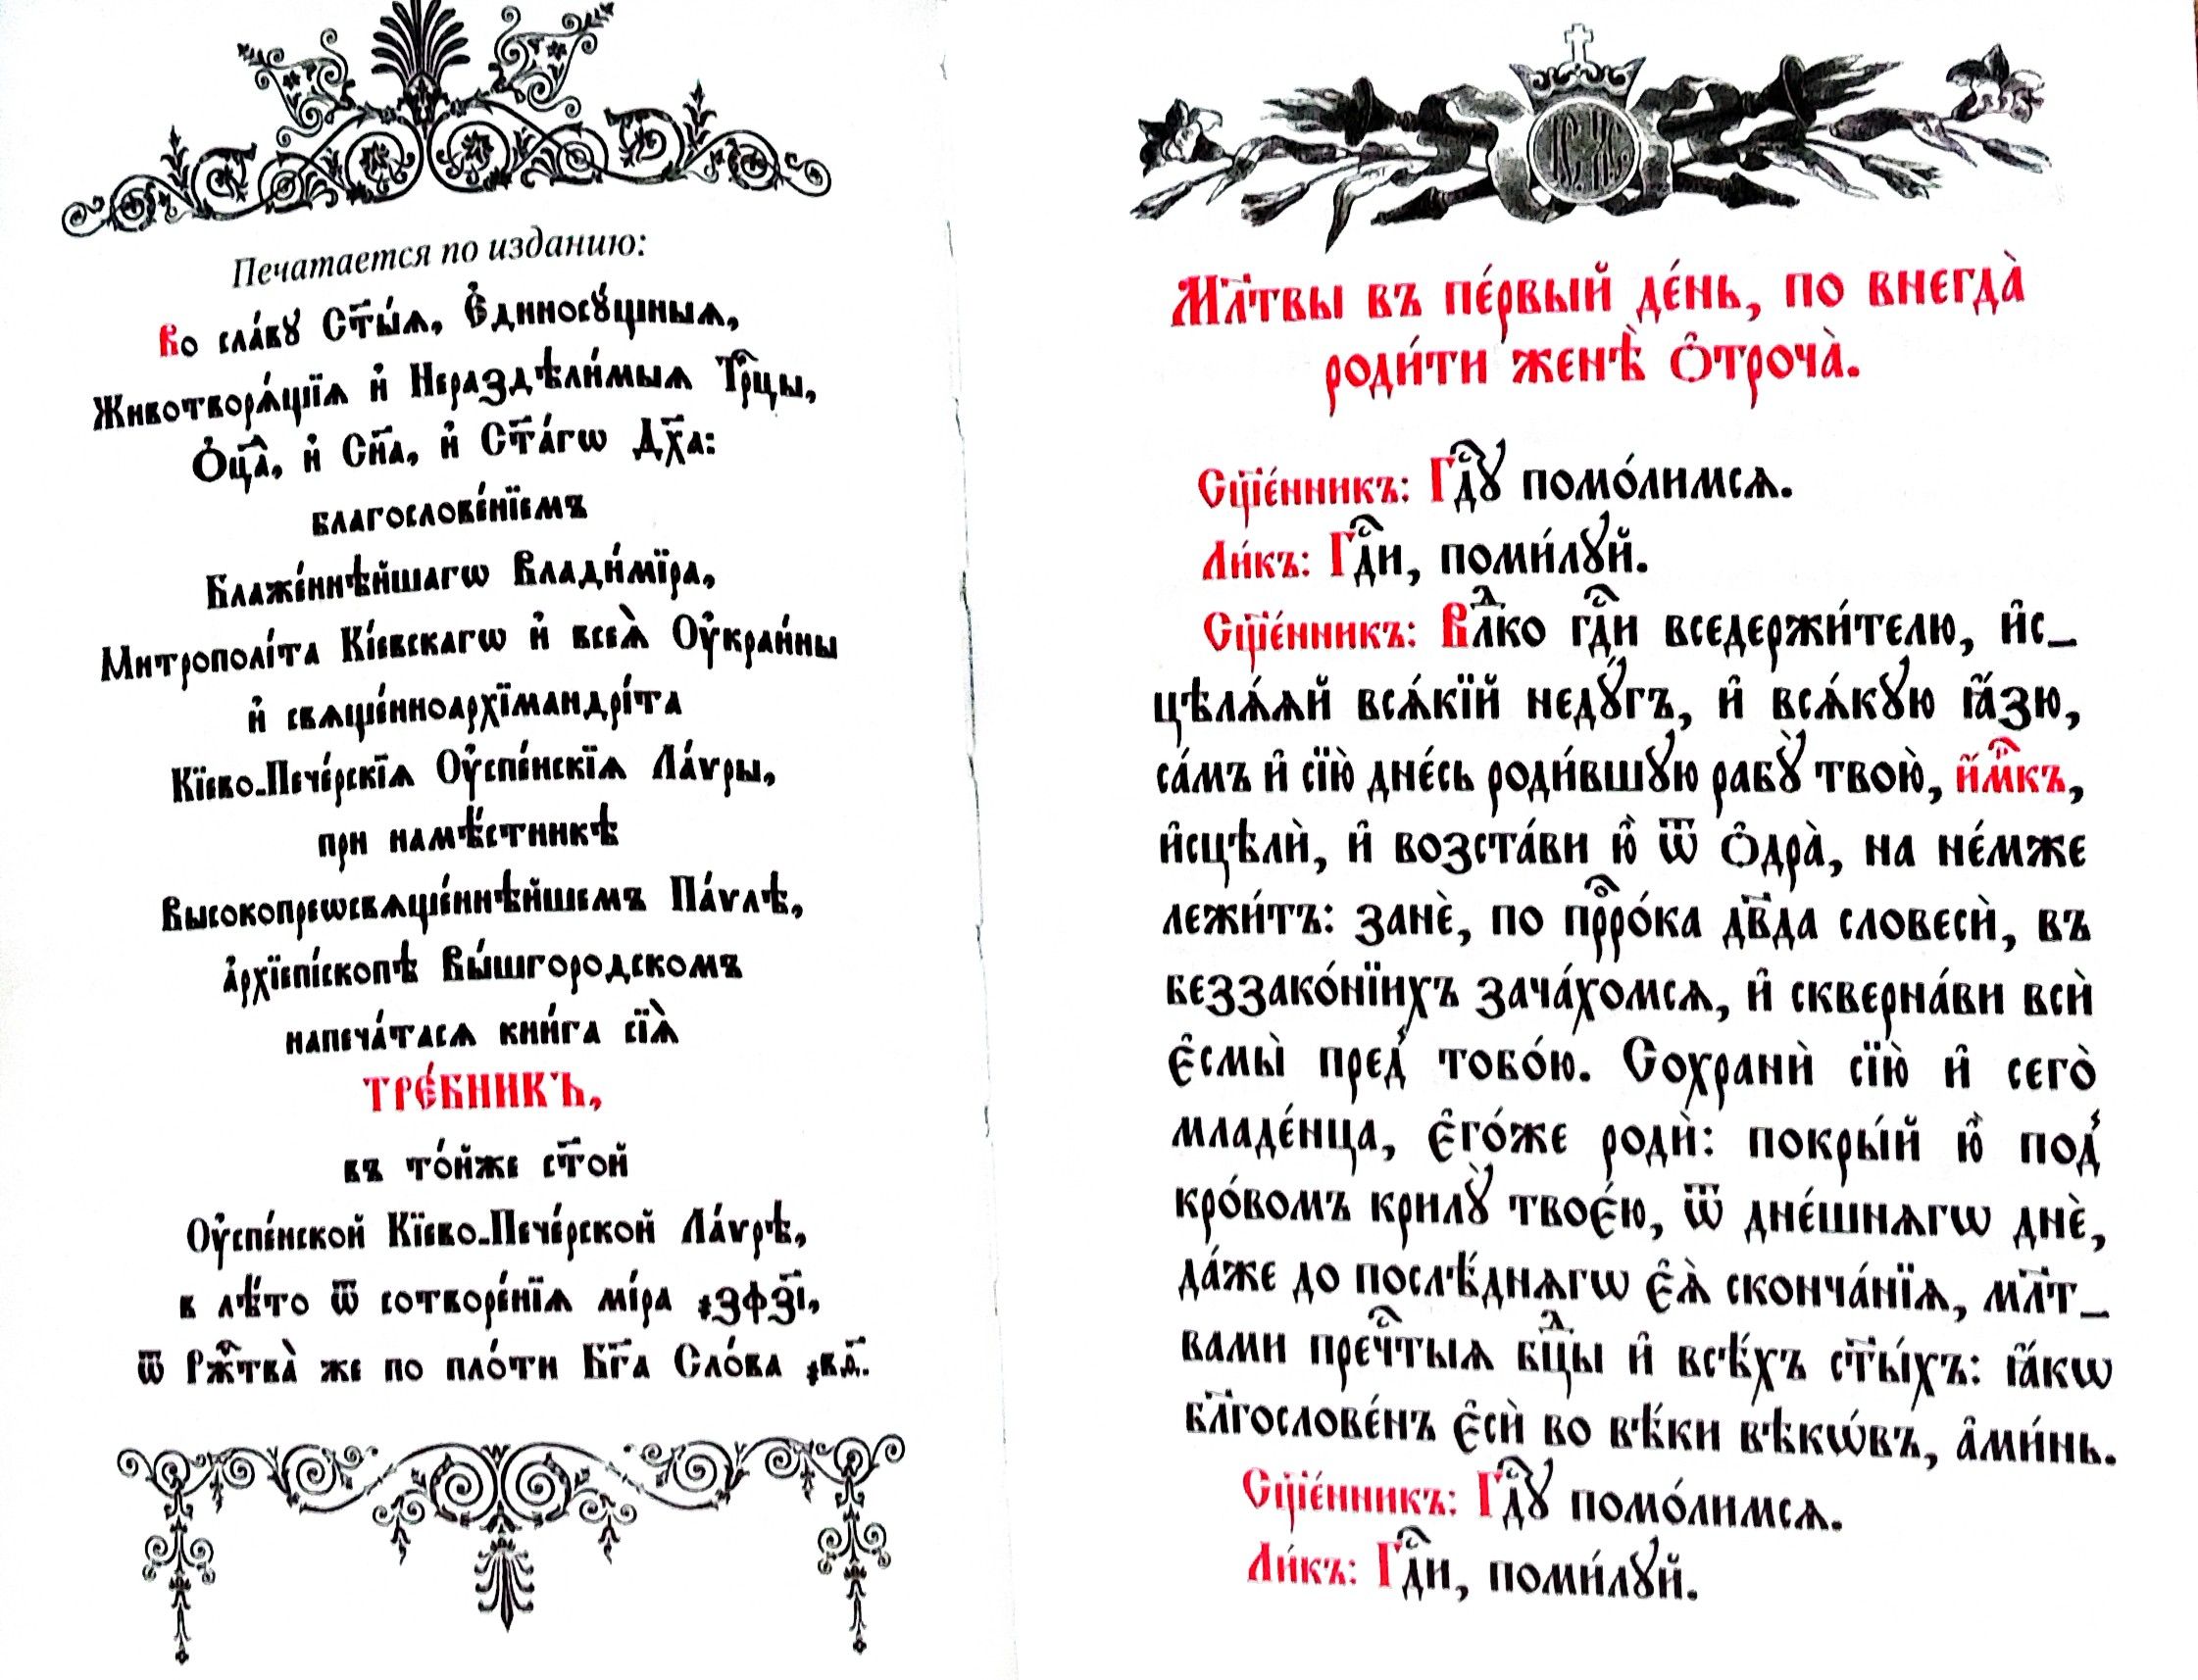 Печатается по изданию:
Во сла́вꙋ Ст҃ы́ѧ, Є҆диносꙋ́щныѧ,
Животворѧ́щїѧ и҆ Нераздѣли́мыѧ Трⷪ҇цы,
Ѻ҆ц҃а̀, и҆ Сн҃а, и҆ Ст҃а́гѡ Дх҃а:
благослове́нїемъ
Блаже́ннѣйшагѡ Влади́мїра,
Митрополі́та Кі́евскагѡ и҆ всеѧ̀ Оу҆краи́ны
и҆ свѧще́нноархїмандрі́та
Кїево-Пече́рскїѧ Оу҆спе́нскїѧ Ла́ѵры,
при намѣ́стникѣ
Высокопреѡсвѧще́ннѣйшемъ Па́ѵлѣ,
а҆рхїепі́скопѣ Вы́шгородскомъ
напеча́тасѧ кни́га сїѧ̀
ТРЕ́БНИКЪ,
въ то́йже ст҃ой
Оу҆спе́нской Кїево-Пече́рской Ла́ѵрѣ,
в лѣ́то ѿ сотворе́нїѧ мі́ра ҂зфз҃і,
ѿ Рж҃тва̀ же по пло́ти Бг҃а Сло́ва ҂вд҃.
Мл҃твы въ пе́рвый де́нь, по внегда̀
роди́ти женѣ̀ ѻ҆троча̀.
Сщ҃е́нникъ: Гдⷭ҇ꙋ помо́лимсѧ.
Ли́къ: Гдⷭ҇и, поми́лꙋй.
Сщ҃е́нникъ: Влⷣко гдⷭ҇и вседержи́телю, и҆с_
цѣлѧ́ѧй всѧ́кїй недꙋ́гъ, и҆ всѧ́кꙋю ꙗ҆́зю,
са́мъ и҆ сїю̀ дне́сь роди́вшꙋю рабꙋ̀ твою̀, и҆́м҃къ,
и҆сцѣлѝ, и҆ возста́ви ю҆̀ ѿ ѻ҆дра̀, на не́мже
лежи́тъ: занѐ, по прⷪ҇ро́ка дв҃да словесѝ, въ
беззако́нїихъ зача́хомсѧ, и҆ скверна́ви всѝ
є҆смы̀ пред̾ тобо́ю. Сохранѝ сїю̀ и҆ сего̀
младе́нца, є҆го́же родѝ: покры́й ю҆̀ под̾
кро́вомъ крилꙋ̀ твоє́ю, ѿ дне́шнѧгѡ днѐ,
да́же до послѣ́днѧгѡ є҆ѧ̀ сконча́нїѧ, мл҃т_
вами пречⷭ҇тыѧ бцⷣы и҆ всѣ́хъ ст҃ы́хъ: ꙗ҆́кѡ
бл҃гослове́нъ є҆сѝ во вѣ́ки вѣкѡ́въ, а҆ми́нь.
Сщ҃е́нникъ: Гдⷭ҇ꙋ помо́лимсѧ.
Ли́къ: Гдⷭ҇и, поми́лꙋй.